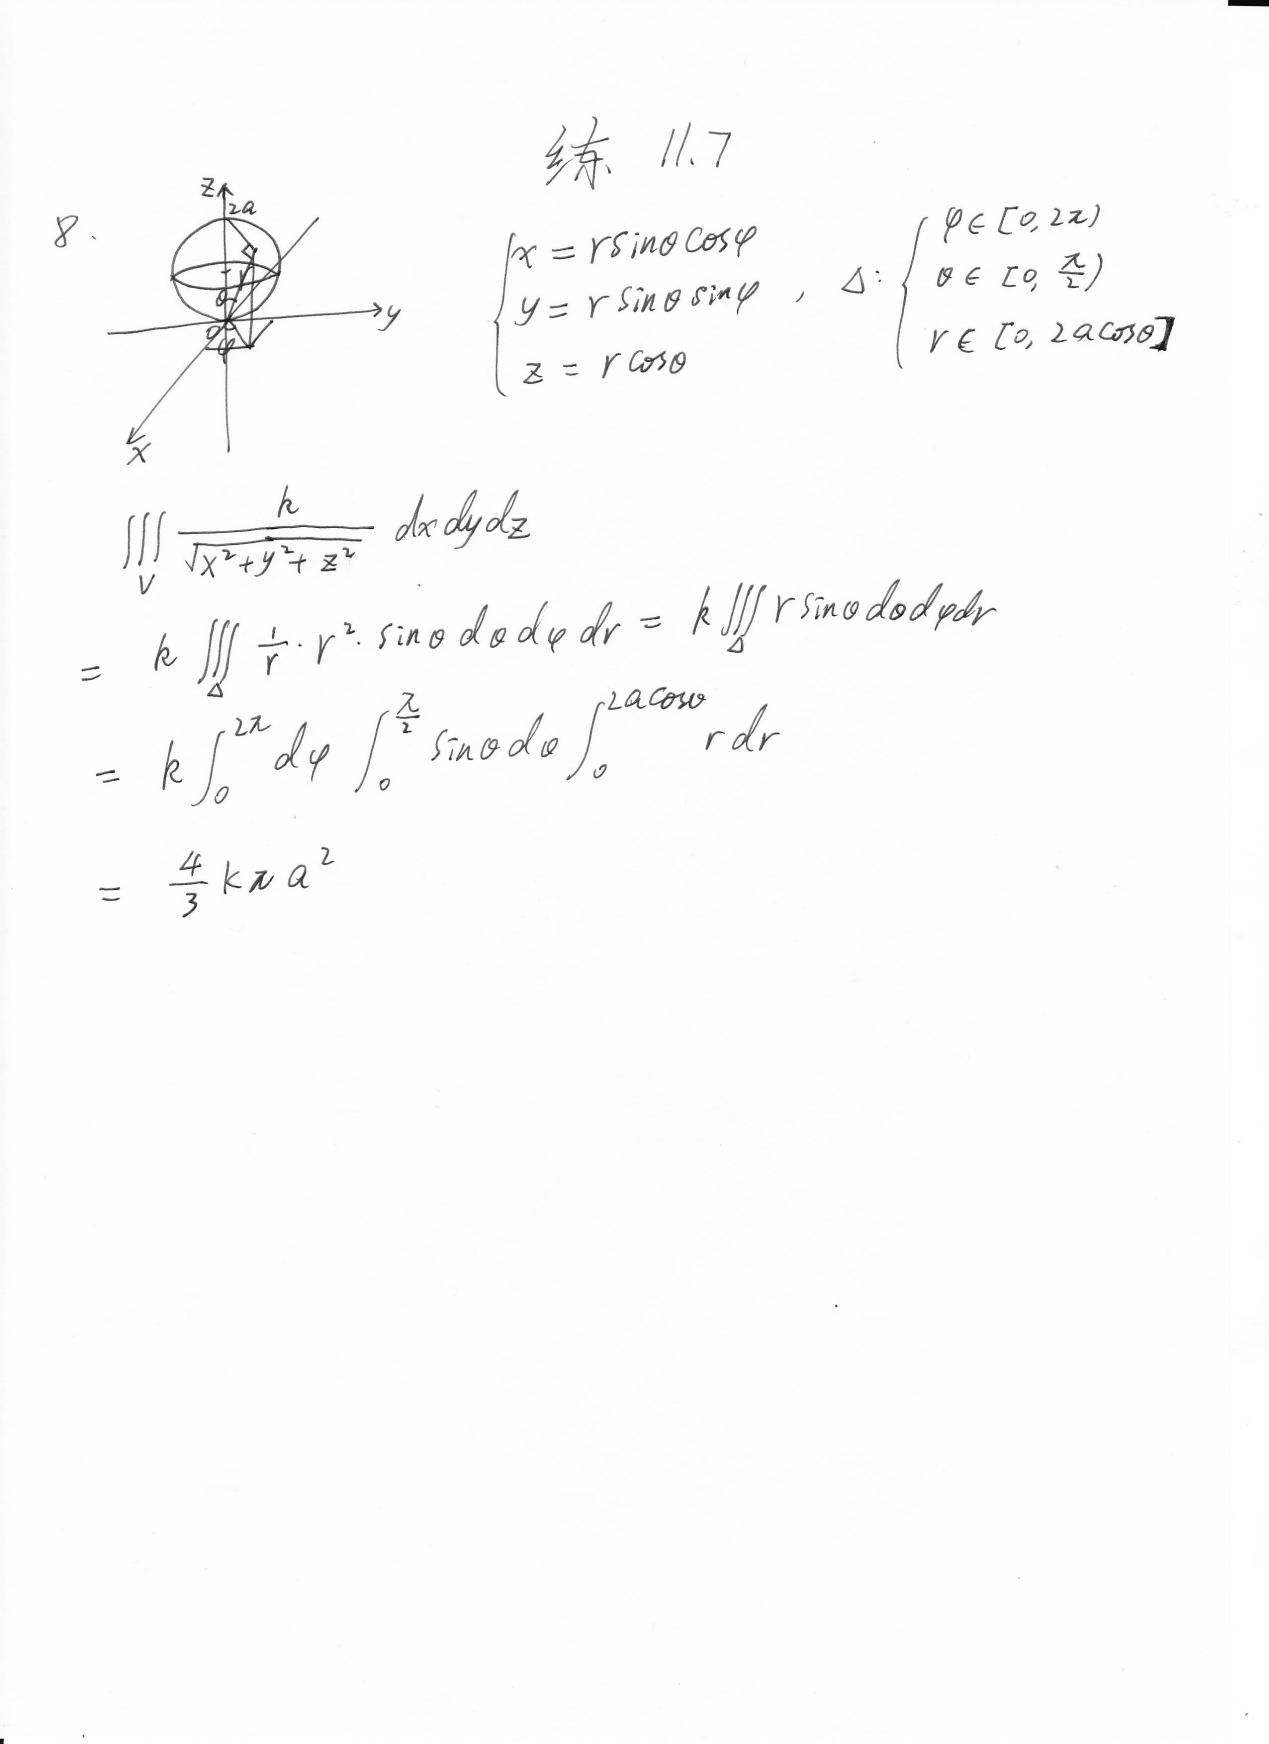 练 11.7
8.
z
2a
r
θ
o
φ
y
x
{ x = r sinθ cosφ
y = r sinθ sinφ , Δ: { φ ∈ [0, 2π)
θ ∈ [0, π/2)
z = r cosθ
r ∈ [0, 2a cosθ]
∭_V k/√(x²+y²+z²) dx dy dz
= k ∭_Δ 1/r · r² · sinθ dθ dφ dr = k ∭_Δ r sinθ dθ dφ dr
= k ∫_0^{2π} dφ ∫_0^{π/2} sinθ dθ ∫_0^{2a cosθ} r dr
= 4/3 k π a²